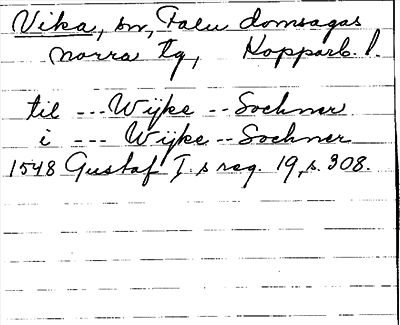 Vika, sn, Falu domsagas
norra tg, Kopparb. l.
til --- Wijke -- Sochner
i --- Wijke -- Sochner
1548 Gustaf I.s reg. 19, s. 308.